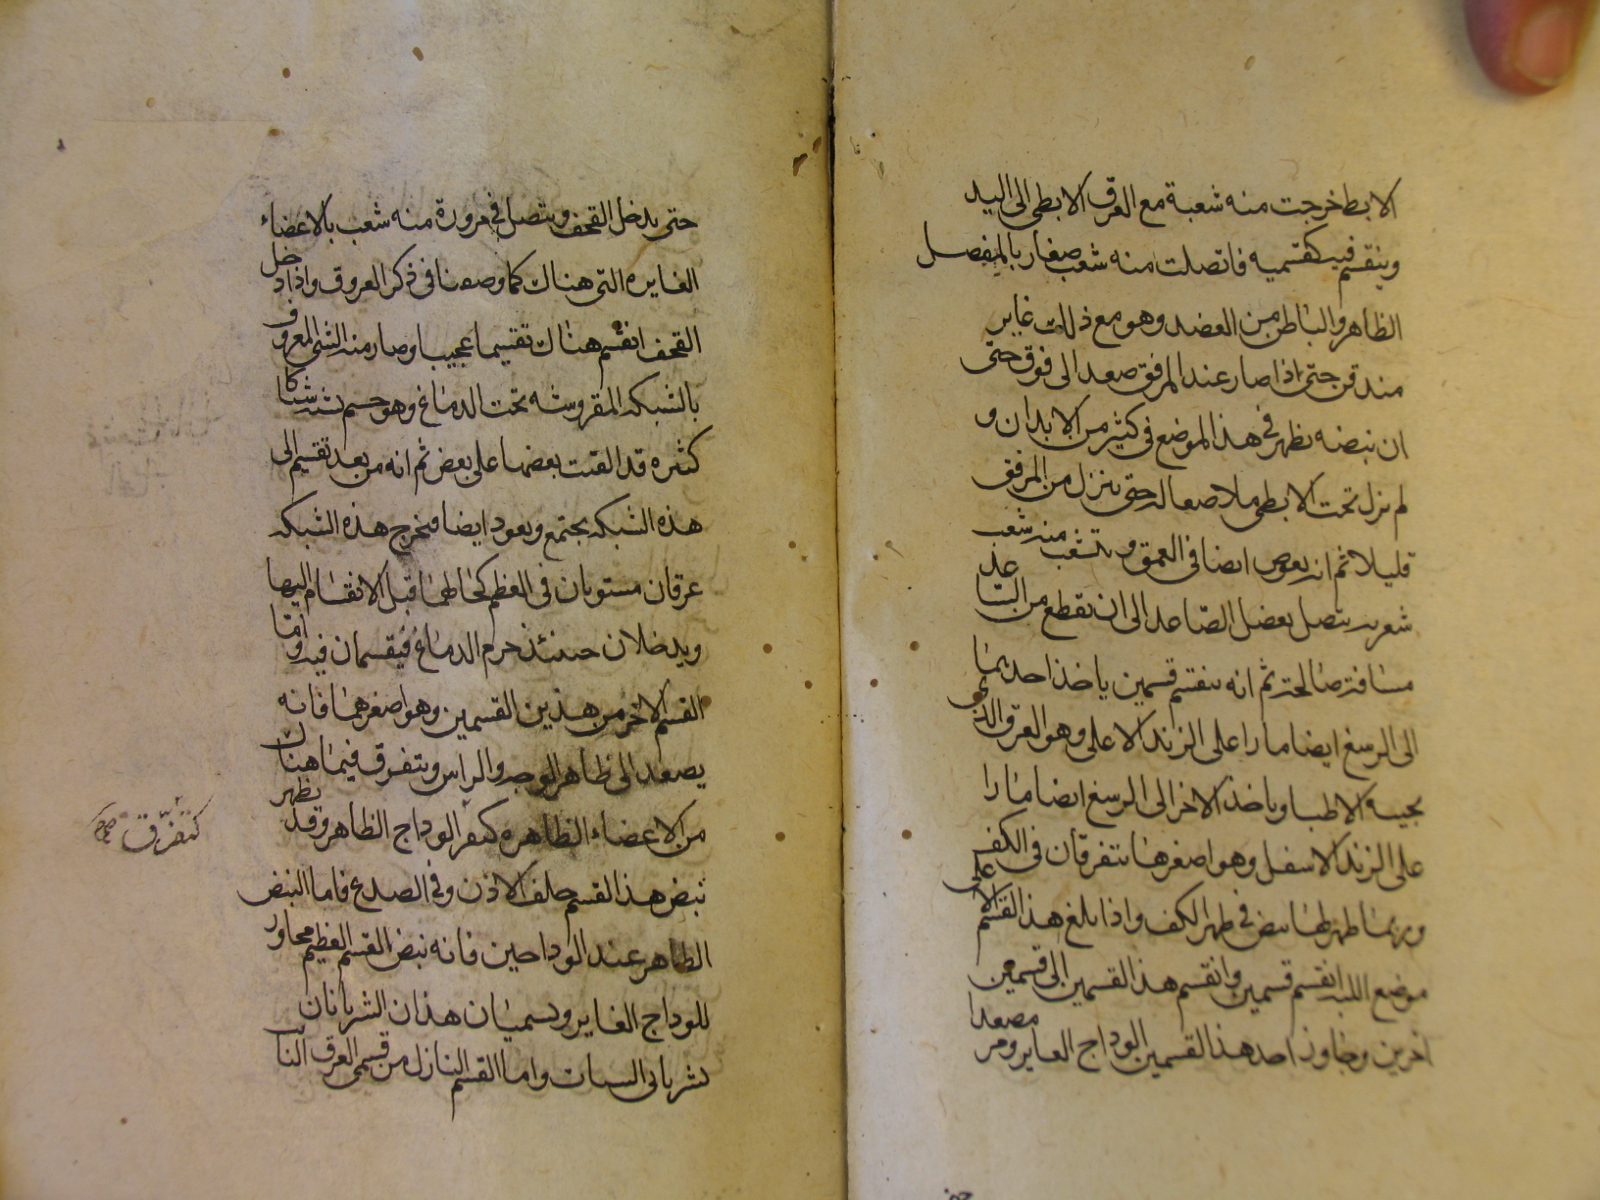 الابط خرجت منه شعبة مع العرق الابطى الى اليد
وينقسم فيه كقسميه فاتصلت منه شعب صغار بالمفصل
الظاهر والباطن من العضد وهو مع ذلك غاير
مندفن حتى اذا صار عند المرفق صعد الى فوق حتى
ان نبضه يظهر فى هذا الموضع فى كثير من الابدان و
لم يزل تحت الابطى ملاصقا له حتى ينزل من المرفق
قليلا ثم انه يغوص ايضا فى العمق ويتشعب منه شعب
شعريه يتصل بعضل الصاعد الى ان يقطع من الساعد
مسافة صالحة ثم انه ينقسم قسمين ياخذ احديهما
الى الرسغ ايضا مارا على الزند الاعلى وهو العرق الذى
يجيسه الاطبا وياخذ الاخر الى الرسغ ايضا مارا
على الزند الاسفل وهو اصغرهما يتفرقان فى الكف
وربما ظهر لهما نبض فى ظهر الكف واذا بلغ هذا القسم الاعلى
موضع اللبه انقسم قسمين وانقسم هذا القسمين الى قسمين
اخرين وجاوز احد هذا القسمين الوداج الغاير ومر مصعدا
حتى يدخل القحف ويتصل فى مروره منه شعب بالاعضاء
الغايره التى هناك كما وصفنا فى ذكر العروق واذا دخل
القحف انقسم هناك تقسيما عجيبا وصار منه الشى المعروف
بالشبكه المفروشه تحت الدماغ وهو جسم يشبه شباكا
كثيره قد القيت بعضها على بعض ثم انه من بعد تقسيم الى
هذه الشبكه يجتمع ويعود ايضا فيخرج هذه الشبكه
عرقان مستويان فى العظم كحاطهما قبل الانقسام اليها
ويدخلان حينئذ جرم الدماغ فيقسمان فيه واما
القسم الاخر من هذين القسمين وهو اصغرهما فانه
يصعد الى ظاهر الوجه والراس ويتفرق فيما هناك
من الاعضاء الظاهره كتفر الوداج الظاهر وقد يظهر
كتفرّق صح
نبض هذا القسم خلف الاذن وفى الصدغ فاما النبض
الظاهر عند الوداجين فانه نبض القسم العظيم مجاور
للوداج الغاير ويسميان هذان الشريانان
شريانى السبات واما القسم النازل من قسمى العرق النا